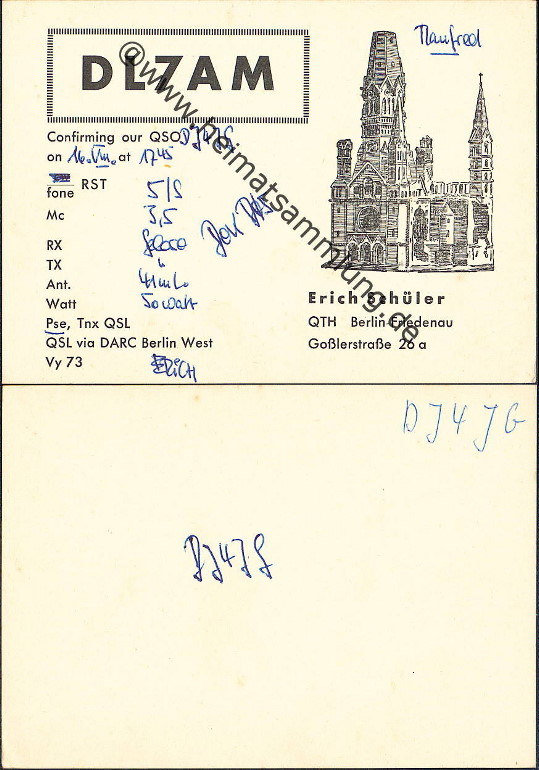 Manfred
DL7AM
Confirming our QSO DJ4JG
on 16. VIII. at 1745
fone RST 5/9
Mc 3,5
RX
TX "
Ant.
Watt 50 watt
Pse, Tnx QSL
QSL via DARC Berlin West
Vy 73 ERICH
DOK
Erich Schüler
QTH Berlin-Friedenau
Goßlerstraße 26 a
@www.heimatsammlung.de
DJ4JG
DJ4JG